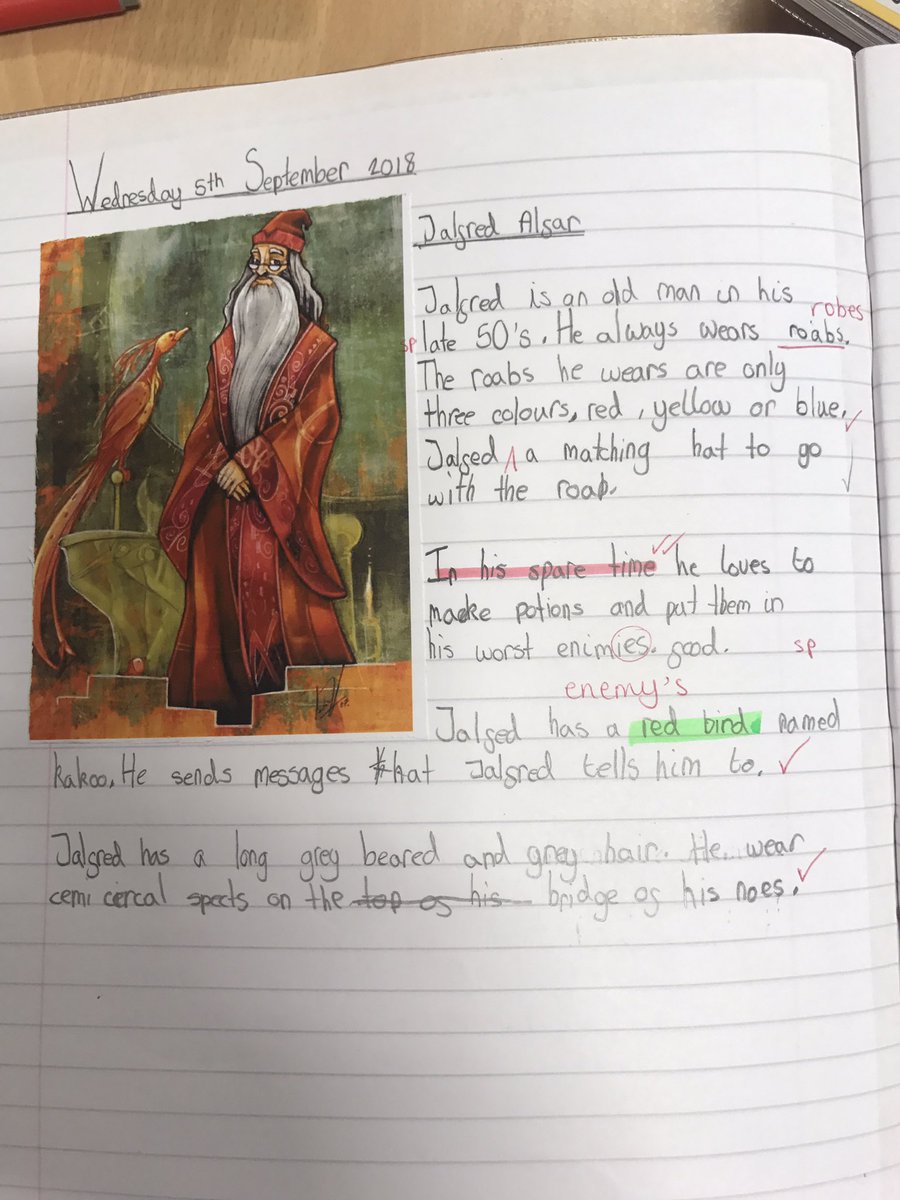 Wednesday 5th September 2018
Jalfred Alfar
Jalfred is an old man in his
robes
sp late 50's. He always wears roabs.
The roabs he wears are only
three colours, red, yellow or blue.
Jalfed ^ a matching hat to go
with the roab.
In his spare time he loves to
macke potions and put them in
his worst enimies. good. sp
enemy's
Jalfed has a red bird named
kakoo. He sends messages that Jalfred tells him to.
Jalfred has a long grey beared and grey hair. He wear
cemi cercal spects on the top of his bridge of his noes.